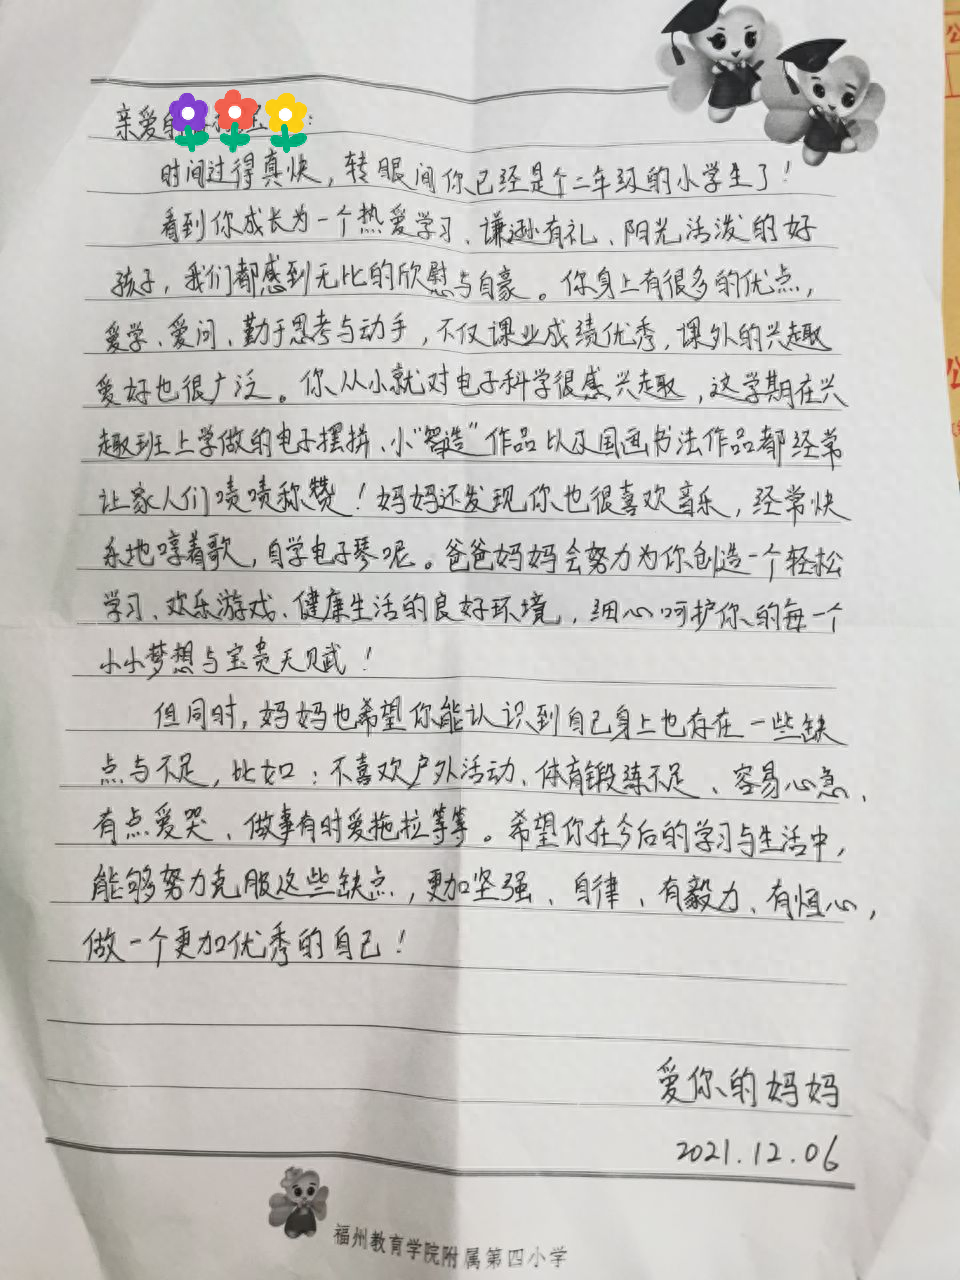 亲爱的
时间过得真快，转眼间你已经是个二年级的小学生了！
看到你成长为一个热爱学习、谦逊有礼、阳光活泼的好
孩子，我们都感到无比的欣慰与自豪。你身上有很多的优点，
爱学、爱问、勤于思考与动手，不仅课业成绩优秀，课外的兴趣
爱好也很广泛。你从小就对电子科学很感兴趣，这学期在兴
趣班上学做的电子摆拼、小“智造”作品以及国画书法作品都经常
让家人们啧啧称赞！妈妈还发现你也很喜欢音乐，经常快
乐地哼着歌，自学电子琴呢。爸爸妈妈会努力为你创造一个轻松
学习、欢乐游戏、健康生活的良好环境，细心呵护你的每一个
小小梦想与宝贵天赋！
但同时，妈妈也希望你能认识到自己身上也存在一些缺
点与不足，比如：不喜欢户外活动、体育锻练不足、容易心急、
有点爱哭、做事有时爱拖拉等等。希望你在今后的学习与生活中，
能够努力克服这些缺点，更加坚强、自律、有毅力、有恒心，
做一个更加优秀的自己！
爱你的妈妈
2021.12.06
福州教育学院附属第四小学
公
公